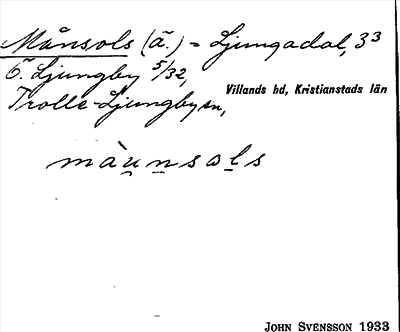 Månsols (ä.) = Ljungadal, 3³
Ö. Ljungby 5/32,
Villands hd, Kristianstads län
Trolle-Ljungby sn,
màu̯n̯sɷl̯s
JOHN SVENSSON 1933